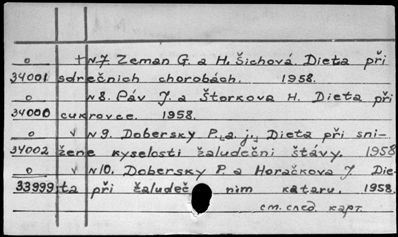 o + N7. Zeman G. a H. Šichová. Dieta při
34001 sdrečnich chorobách. 1958.
o N8. Páv J. a Štorkova H. Dieta při
34000 cukrovce. 1958.
o v N9. Dobersky P. a. j., Dieta při sni-
34002 žene kyselosti žaludečni štávy. 1958
o v N10. Dobersky P. a Horačkova J. Die-
33999 ta při žaludeč nim kataru. 1958.
см. след. карт.